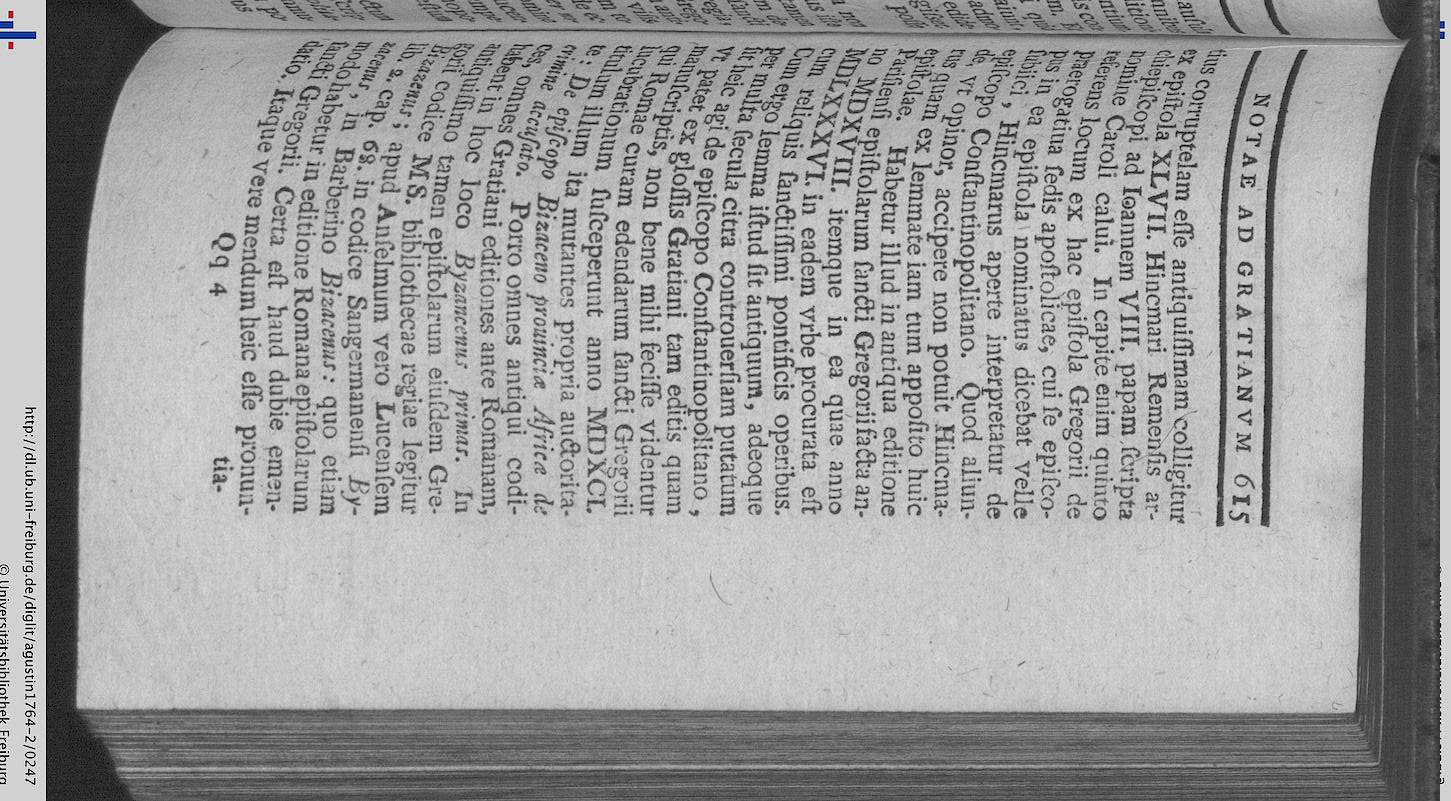 NOTAE AD GRATIANVM 615
tius corruptelam eſſe antiquiſſimam colligitur
ex epiſtola XLVII. Hincmari Remenſis ar-
chiepiſcopi ad Ioannem VIII. papam ſcripta
nomine Caroli calui. In capite enim quinto
referens locum ex hac epiſtola Gregorii de
praerogatiua ſedis apoſtolicae, cui ſe epiſco-
pus in ea epiſtola nominatus dicebat velle
ſubiici, Hincmarus aperte interpretatur de
epiſcopo Conſtantinopolitano. Quod aliun-
de, vt opinor, accipere non potuit Hincma-
rus quam ex lemmate iam tum appoſito huic
epiſtolae. Habetur illud in antiqua editione
Pariſienſi epiſtolarum ſancti Gregorii facta an-
no MDXVIII. itemque in ea quae anno
MDLXXXVI. in eadem vrbe procurata eſt
cum reliquis ſanctiſſimi pontificis operibus.
Cum ergo lemma iſtud ſit antiquum, adeoque
per multa ſecula citra controuerſiam putatum
ſit heic agi de epiſcopo Conſtantinopolitano,
vt patet ex gloſſis Gratiani tam editis quam
manuſcriptis, non bene mihi feciſſe videntur
qui Romae curam edendarum ſancti Gregorii
lucubrationum ſuſceperunt anno MDXCI.
titulum illum ita mutantes propria auctorita-
te: De epiſcopo Bizaceno prouincia Africa de
crimine accuſato. Porro omnes antiqui codi-
ces, omnes Gratiani editiones ante Romanam,
habent in hoc loco Byzancenus primas. In
antiquiſſimo tamen epiſtolarum eiuſdem Gre-
gorii codice MS. bibliothecae regiae legitur
Bizazenus; apud Anſelmum vero Lucenſem
lib. 2. cap. 68. in codice Sangermanenſi By-
zacenus, in Barberino Bizacenus: quo etiam
modo habetur in editione Romana epiſtolarum
ſancti Gregorii. Certa eſt haud dubie emen-
datio. Itaque vere mendum heic eſſe pronun-
Qq 4 tia-
http://dl.ub.uni-freiburg.de/diglit/agustin1764-2/0247
© Universitätsbibliothek Freiburg